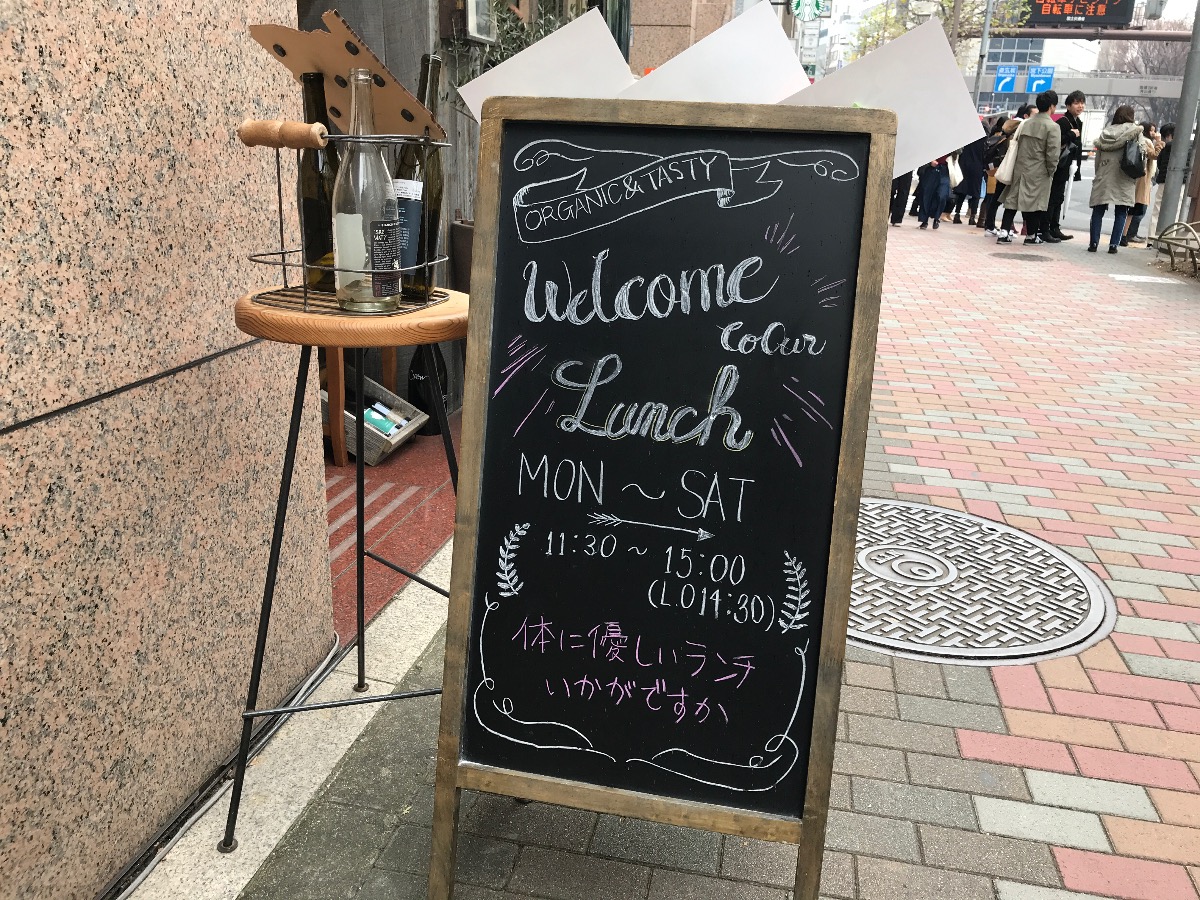 ORGANIC&TASTY
Welcome
CoCur
Lunch
MON ~ SAT
11:30 ~ 15:00
(L.O14:30)
体に優しいランチ
いかがですか
自転車に注意